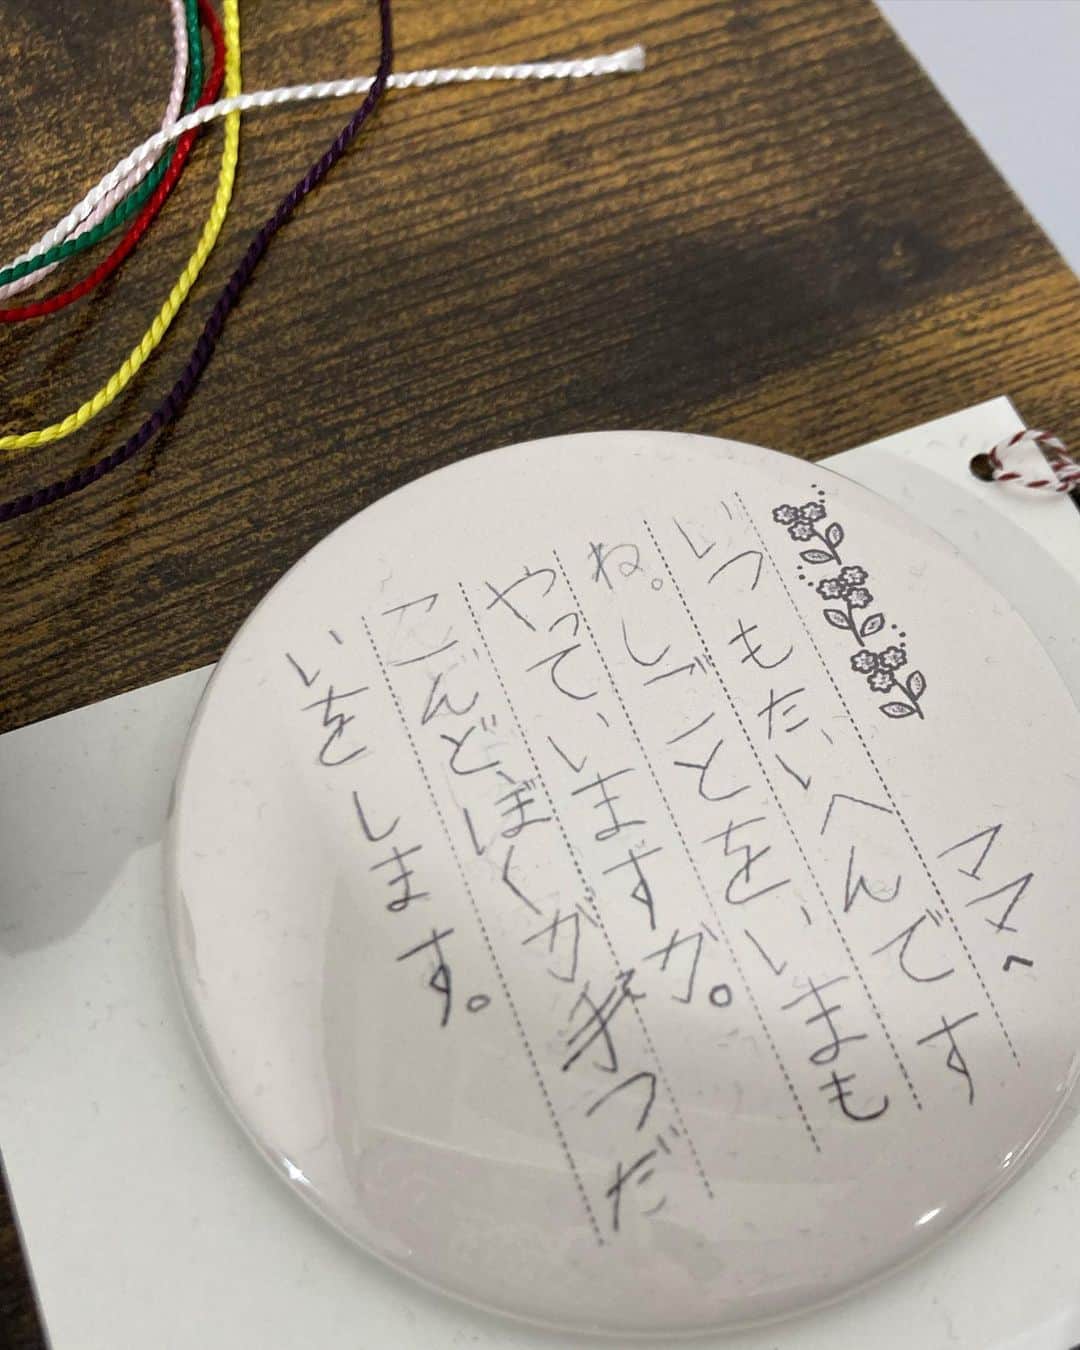 ママへ
いつもたいへんです
ね。しごとを、いまも
やって、いますか。
こんど、ぼくが手つだ
いをします。